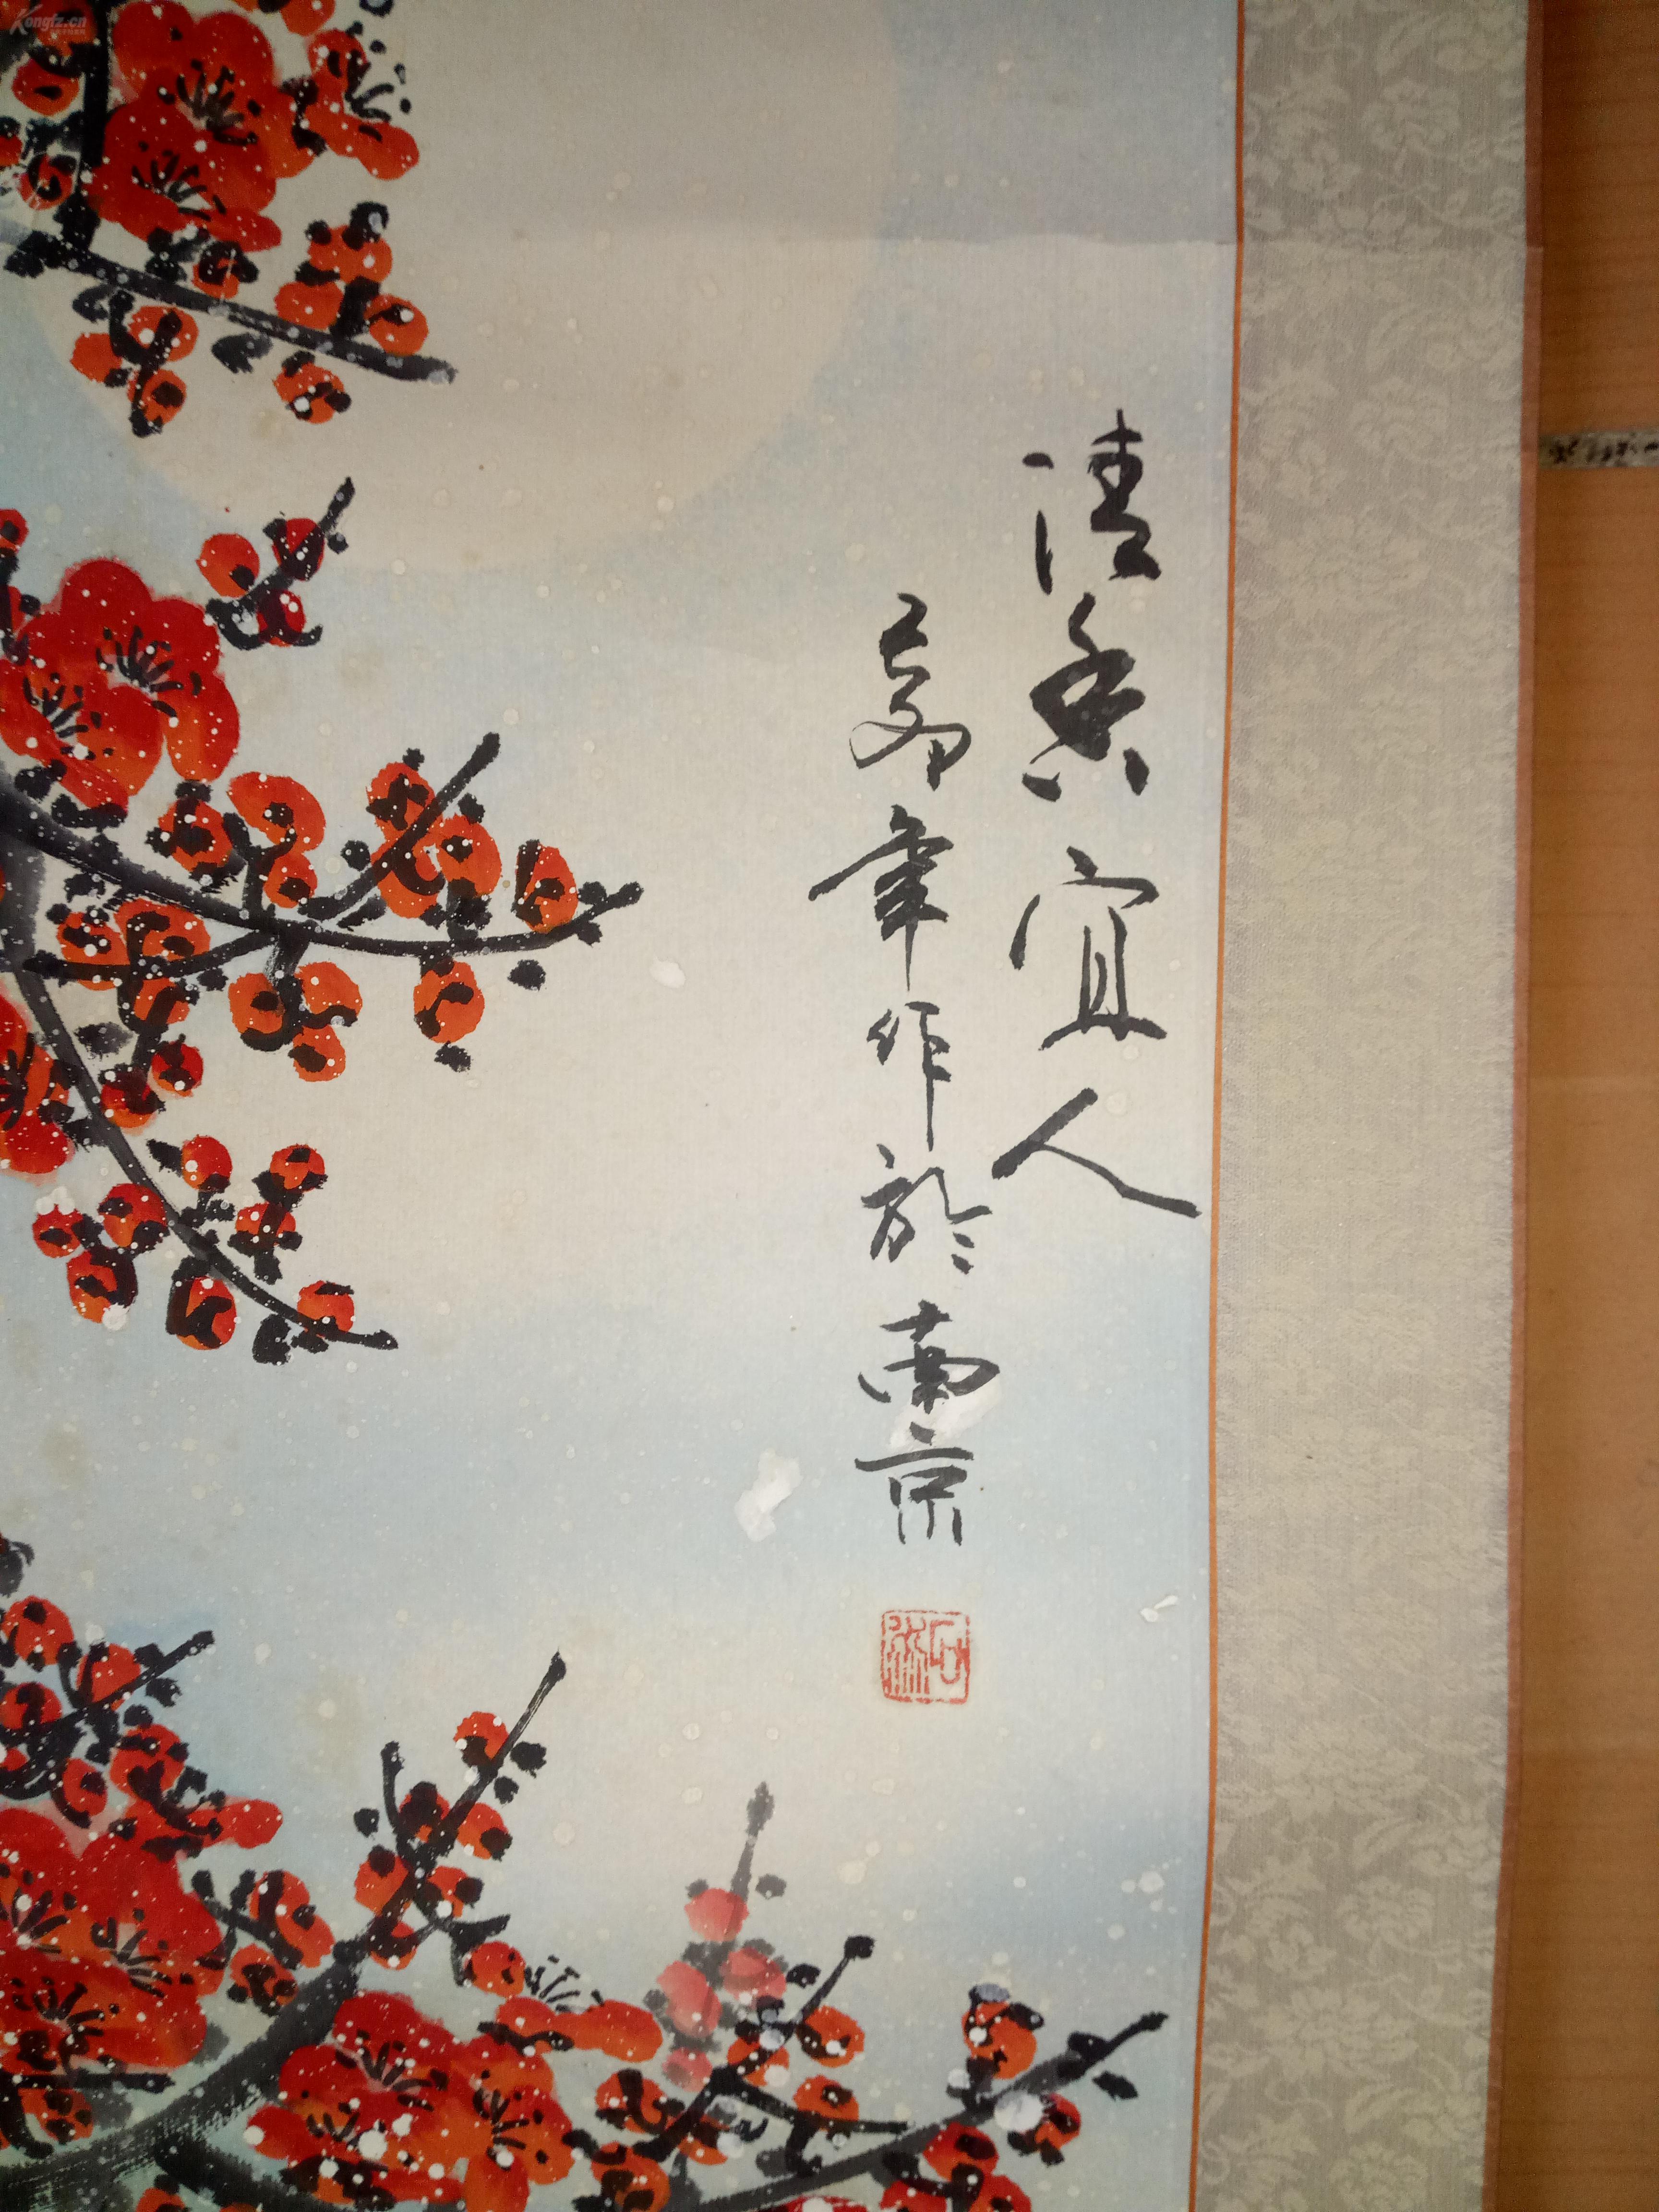 清香宜人
己卯年作於南京
Kongfz.cn